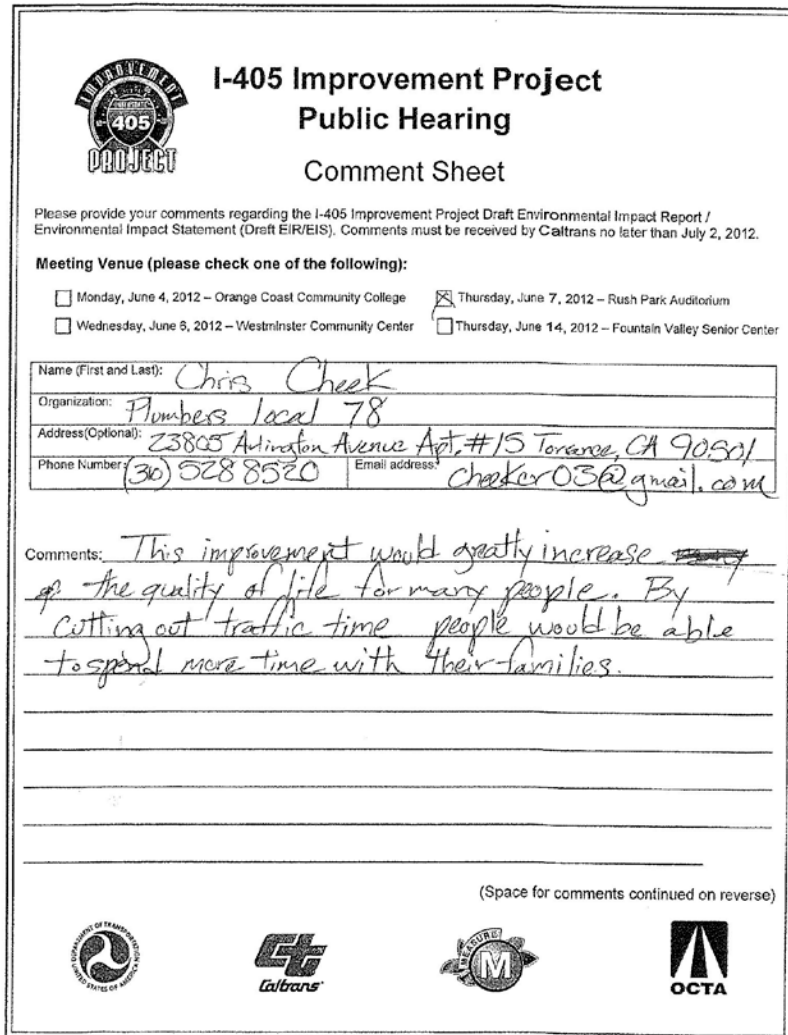 IMPROVEMENT
405
PROJECT
I-405 Improvement Project
Public Hearing
Comment Sheet
Please provide your comments regarding the I-405 Improvement Project Draft Environmental Impact Report /
Environmental Impact Statement (Draft EIR/EIS). Comments must be received by Caltrans no later than July 2, 2012.
Meeting Venue (please check one of the following):
Monday, June 4, 2012 – Orange Coast Community College
Thursday, June 7, 2012 – Rush Park Auditorium
Wednesday, June 6, 2012 – Westminster Community Center
Thursday, June 14, 2012 – Fountain Valley Senior Center
Name (First and Last): Chris Cheek
Organization: Plumbers local 78
Address(Optional): 23805 Arlington Avenue Apt. #15 Torrance, CA 90501
Phone Number: (310) 528 8520 Email address: cheeker03@gmail.com
Comments: This improvement would greatly increase
the quality of life for many people. By
cutting out traffic time people would be able
to spend more time with their families.
(Space for comments continued on reverse)
DEPARTMENT OF TRANSPORTATION
UNITED STATES OF AMERICA
Caltrans
MEASURE
M
OCTA